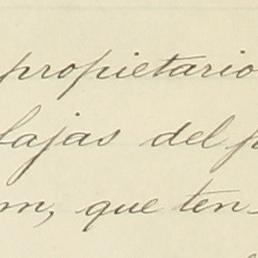 propietario
lajas del p
m, que ten-